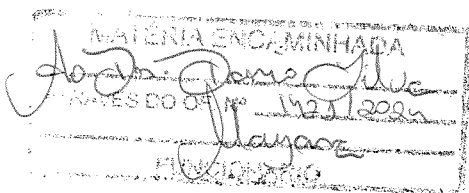 MATÉRIA ENCAMINHADA
Ao Dr. Dario Silva
ATRAVÉS DO OF. Nº 1421/2024
FUNCIONÁRIO